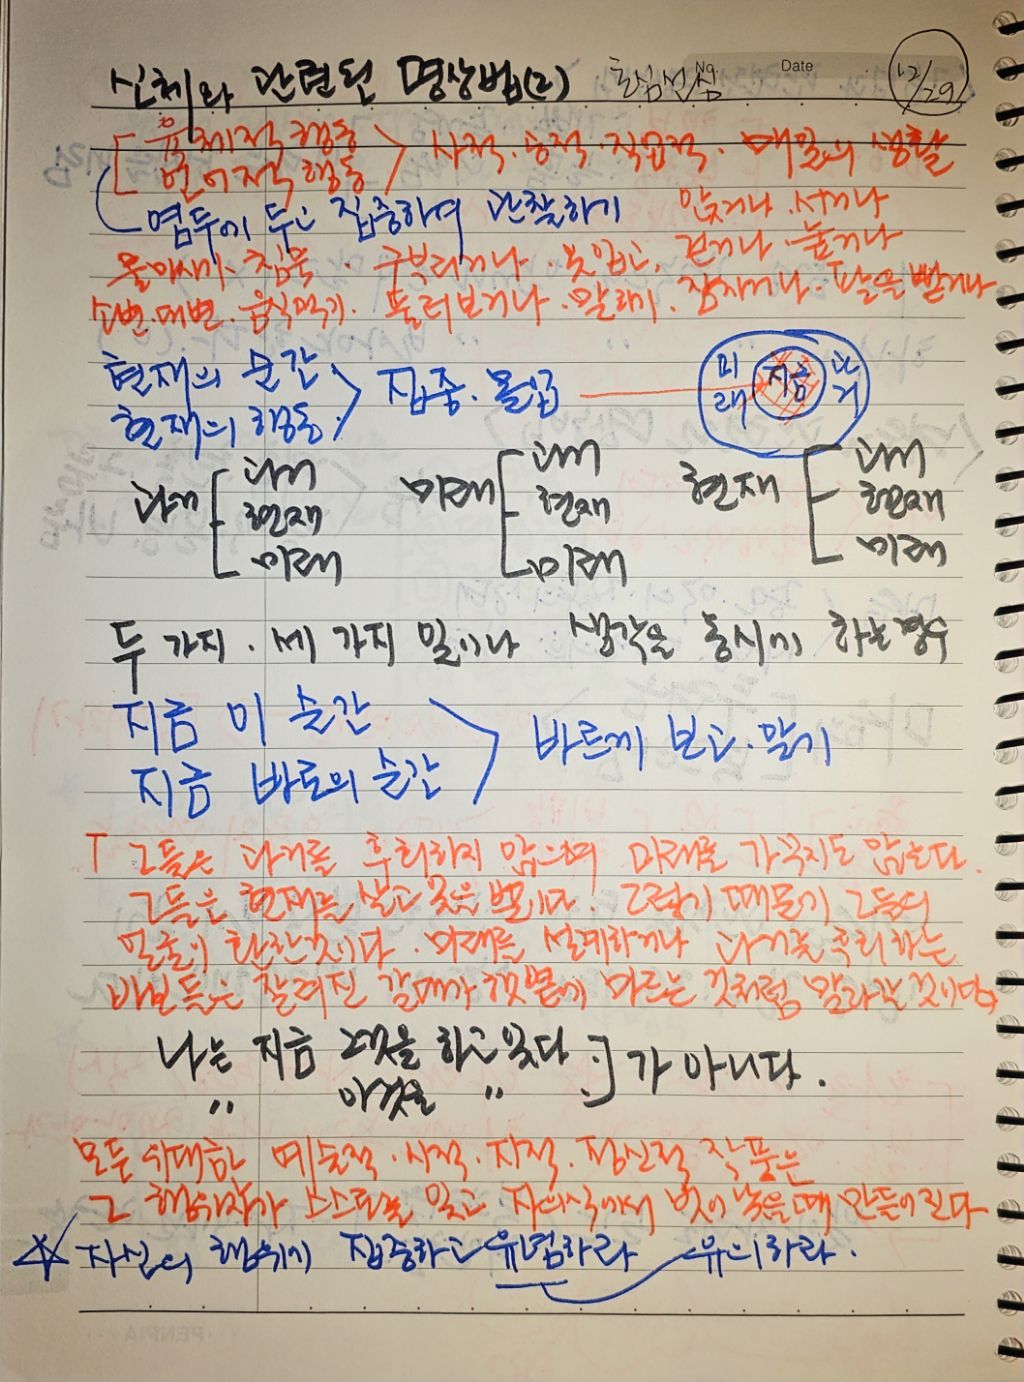 신체와 관련된 명상법(2)
No.
Date
12/29
육체적 행동
언어적 행동
사적·공적·직업적· 매일의 생활
염두에 두고 집중하여 관찰하기
앉거나 ·서거나
침묵 · 구부리거나 · 옷입고, 걷거나 ·눕거나
소변·대변·음식먹기· 둘러보거나 · 말하기· 잠자거나· 팔을 뻗거나
현재의 순간
현재의 행동
집중·몰입
미래
지금
과거
과거
과거
현재
미래
미래
과거
현재
미래
현재
과거
현재
미래
두 가지 · 세 가지 일이나 생각을 동시에 하는경우
지금 이 순간
지금 바로의 순간
바르게 보고·알기
그들은 과거를 후회하지 않으며 미래를 가꾸지도 않는다.
그들은 현재를 살고 있을 뿐이다. 그렇기 때문에 그들의
얼굴이 환한것이다. 미래를 설계하거나 과거를 후회하는
바보들은 잘려진 갈대가 햇볕에 마르는 것처럼 말라갈 것이다.
나는 지금 그것을 하고 있다
〃 이것을 〃
가 아니다.
모든 위대한 예술적·시적·지적·정신적 작품은
그 행위자가 스스로를 잊고 자의식에서 벗어 났을때 만들어 진다
☆ 자신의 행위에 집중하고 유념하라 유의하라.
PENPIA